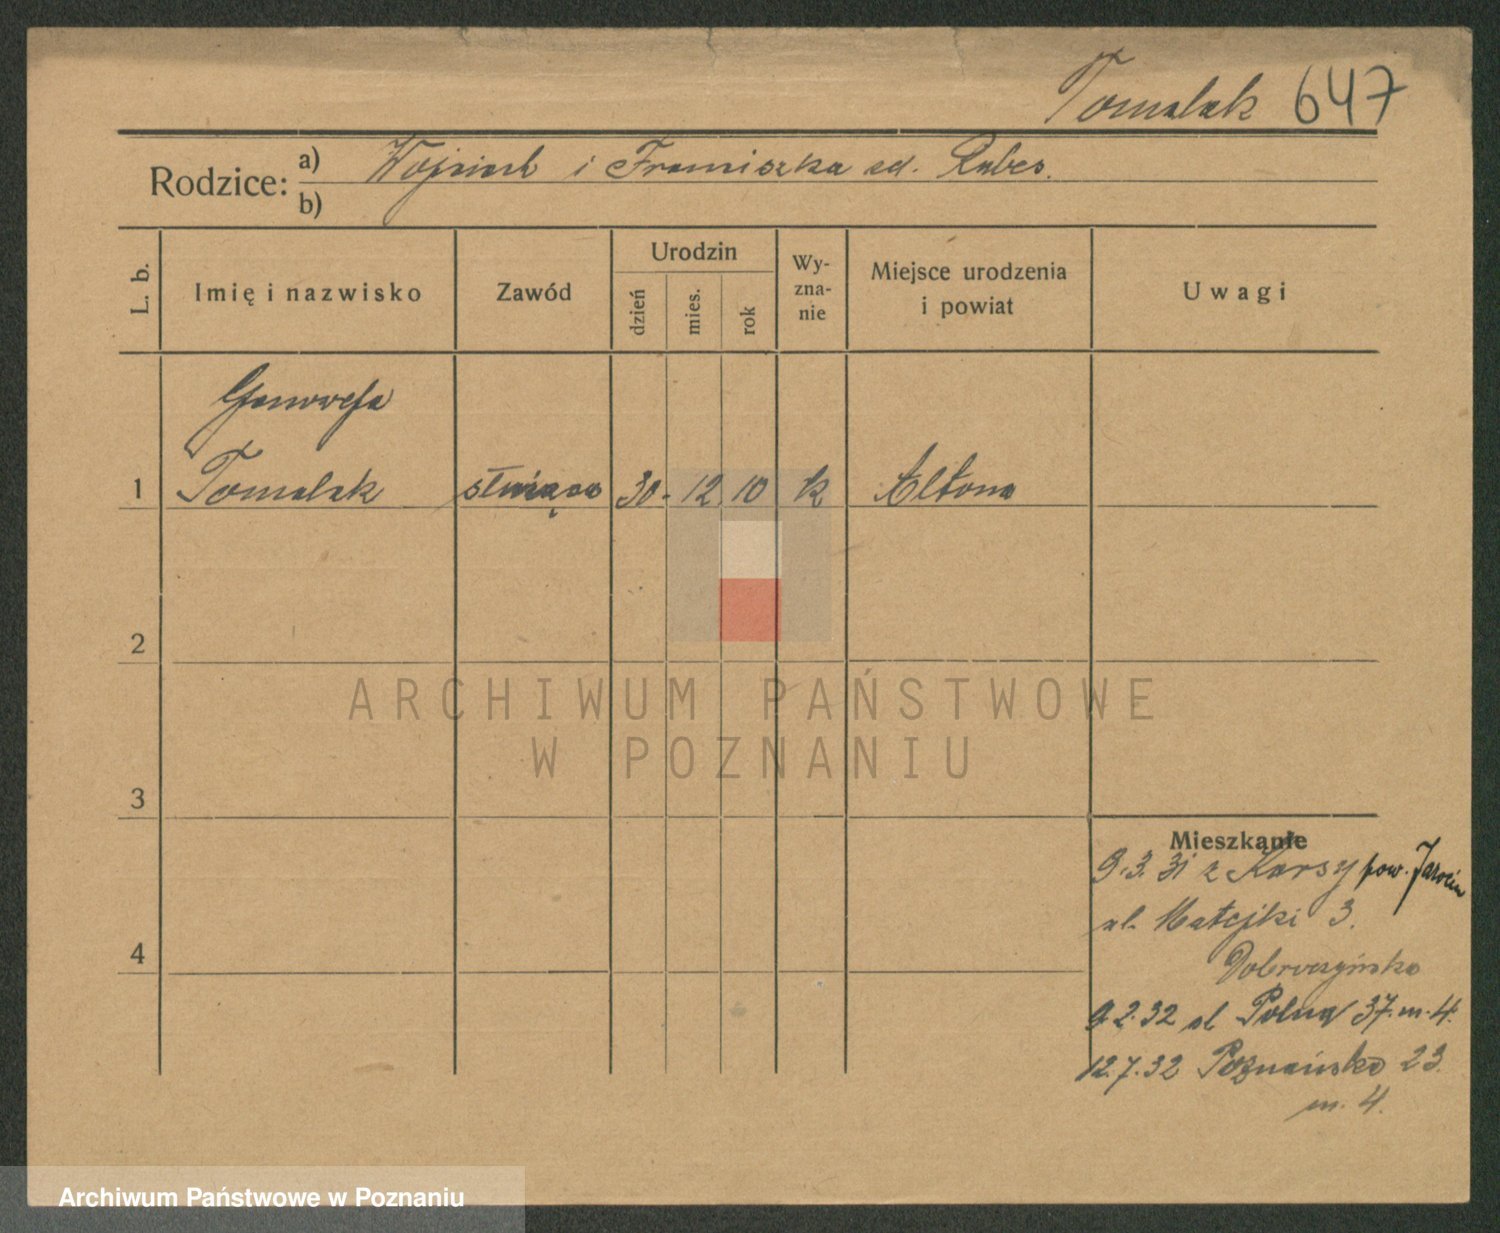 Tomalak 647
Rodzice: a) Wojciech i Franciszka zd. Rubes.
b)
L. b.
Imię i nazwisko
Zawód
Urodzin
dzień
mies.
rok
Wy-
zna-
nie
Miejsce urodzenia
i powiat
Uwagi
Genowefa
1 Tomalak służąca 30. 12 10 k Altona
2
ARCHIWUM PAŃSTWOWE
W POZNANIU
3
Mieszkanie
9.3.31 z Karsy pow. Jarocin
ul. Matejki 3.
4
Dobrzycka
9.2.32 ul Polna 37. m. 4.
12.7.32 Poznańska 23.
m. 4.
Archiwum Państwowe w Poznaniu